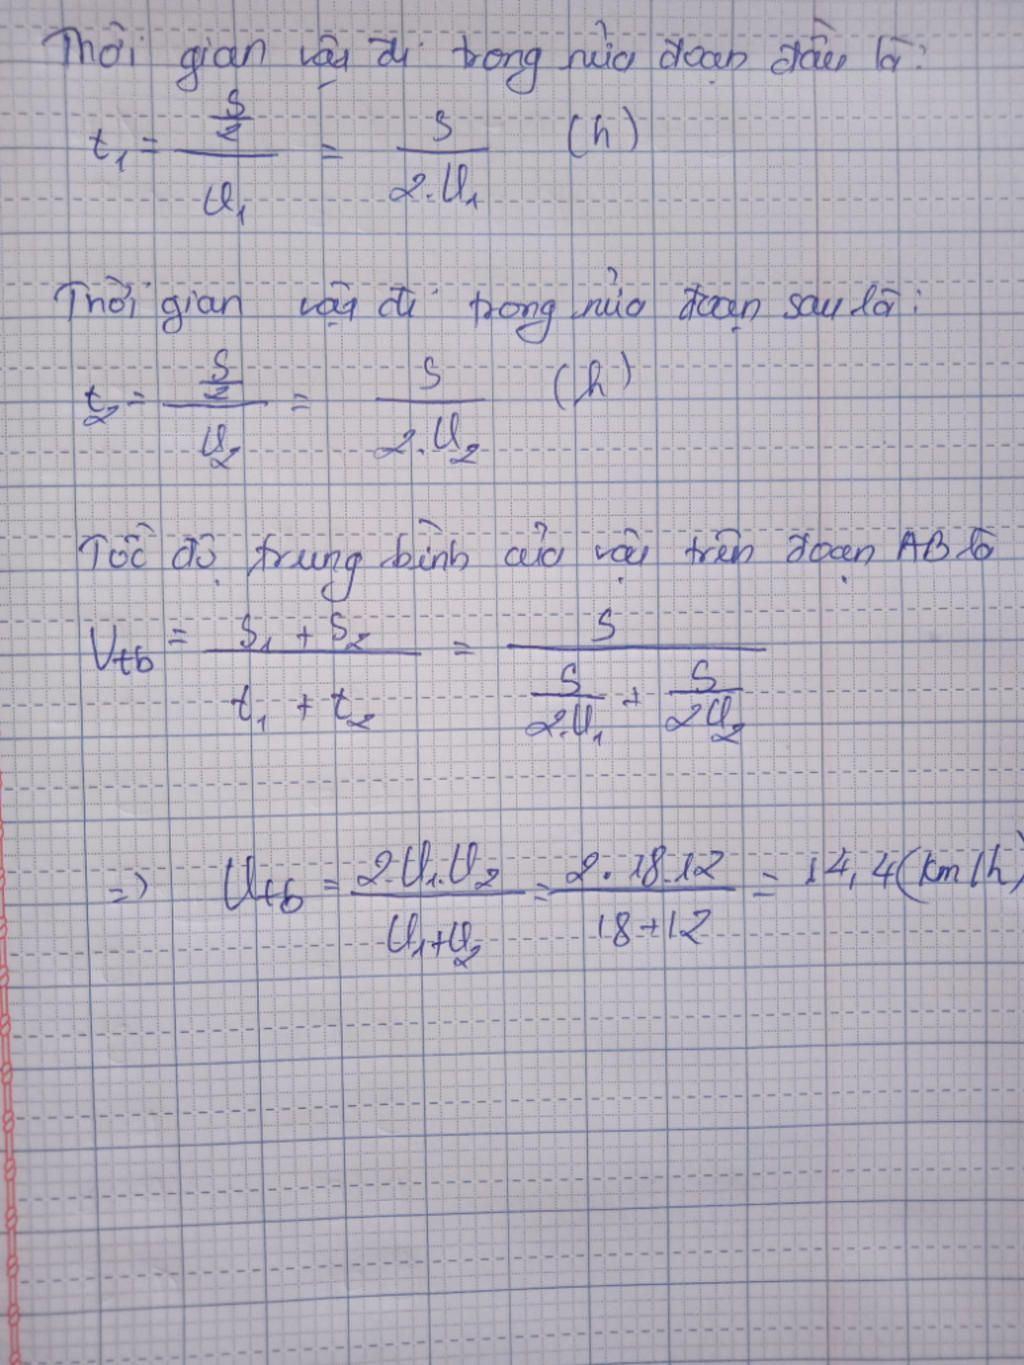 Thời gian vật đi trong nửa đoạn đầu là:
t₁ = (S/2)/v₁ = S/(2.v₁) (h)
Thời gian vật đi trong nửa đoạn sau là:
t₂ = (S/2)/v₂ = S/(2.v₂) (h)
Tốc độ trung bình của vật trên đoạn AB là
Vtb = (S₁ + S₂)/(t₁ + t₂) = S/(S/(2.v₁) + S/(2v₂))
=> vtb = (2.v₁.v₂)/(v₁+v₂) = (2.18.12)/(18+12) = 14,4 (km/h)